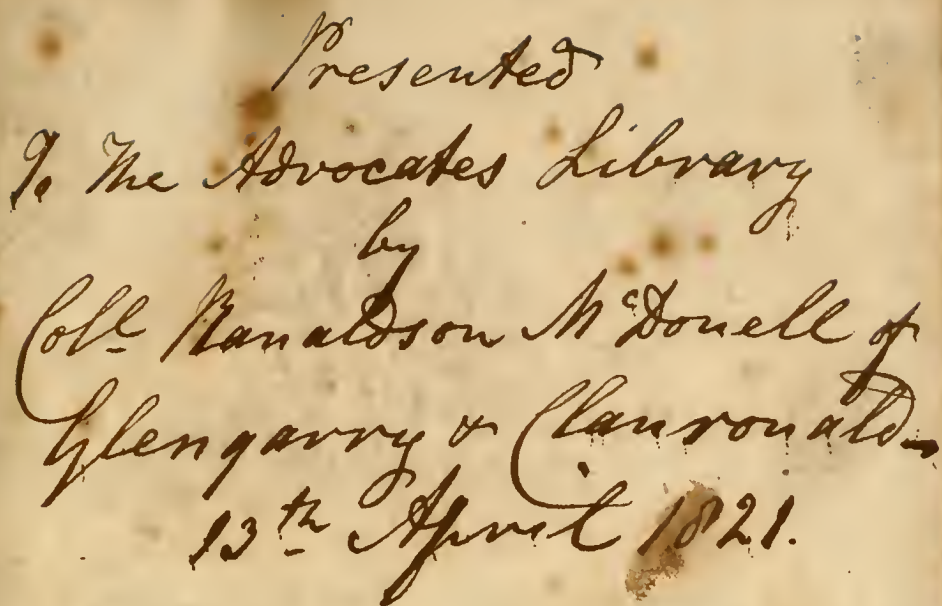 Presented
To The Advocates Library
by
Coll Ranaldson McDonell of
Glengarry & Clanronald
13th April 1821.